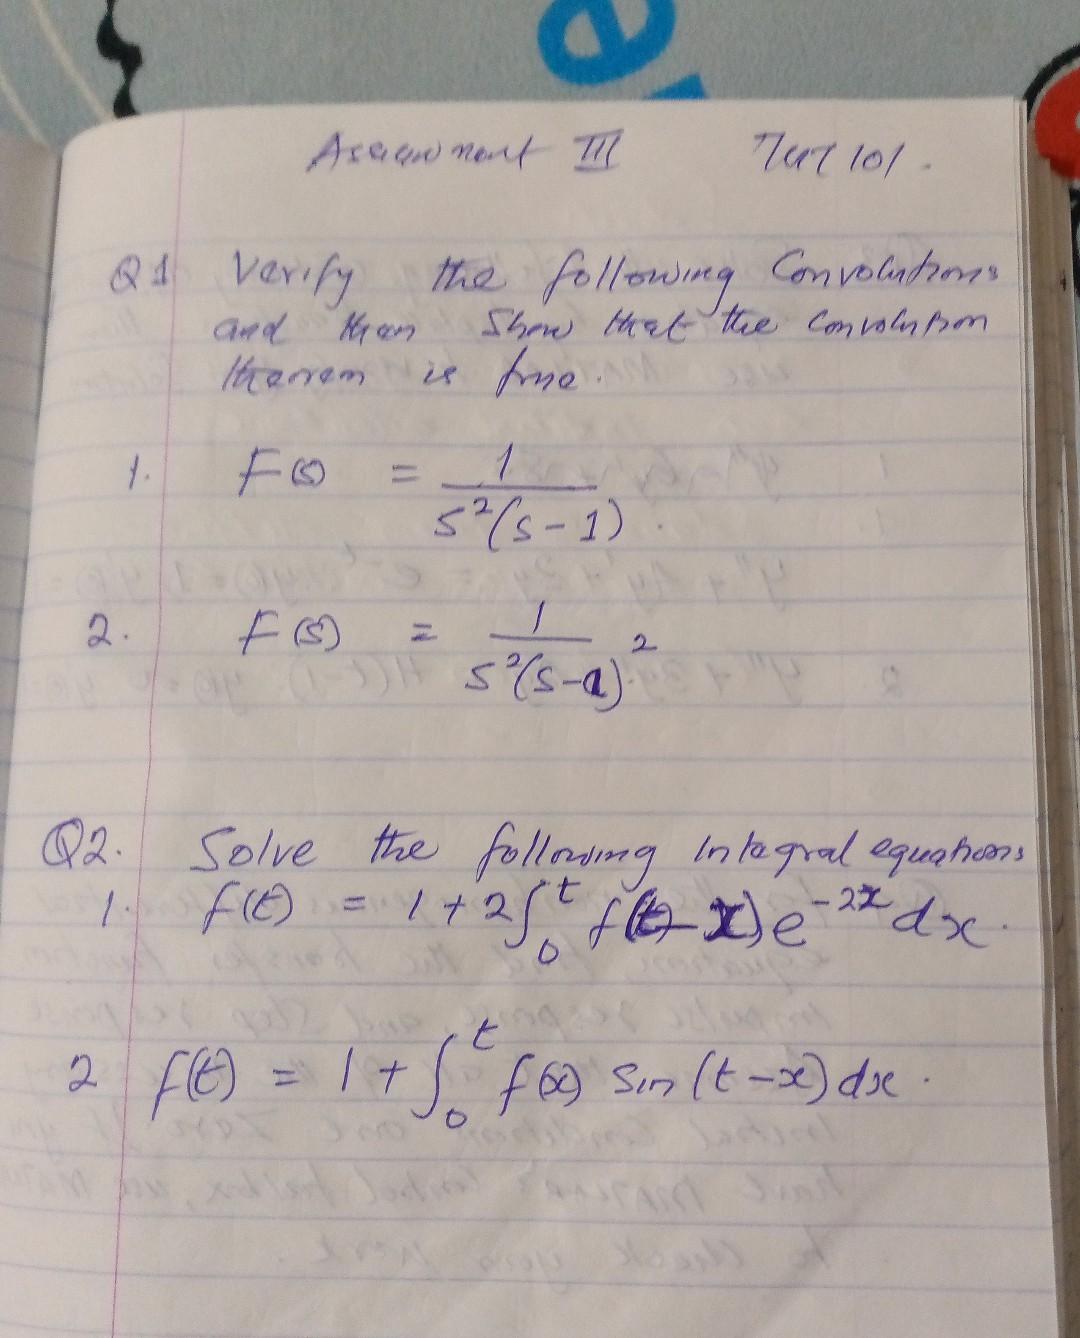 Assignment III
101.
Q1 Verify the following Convolutions
and then Show that the convolution
theorem is true.
1. F(s) = 1/(s²(s-1)).
2. F(s) = 1/(s²(s-1)²)
Q2. Solve the following Integral equations
1. f(t) = 1 + 2∫₀ᵗ f(t-x)e^{-2x} dx.
2 f(t) = 1 + ∫₀ᵗ f(x) Sin (t-x) dx.